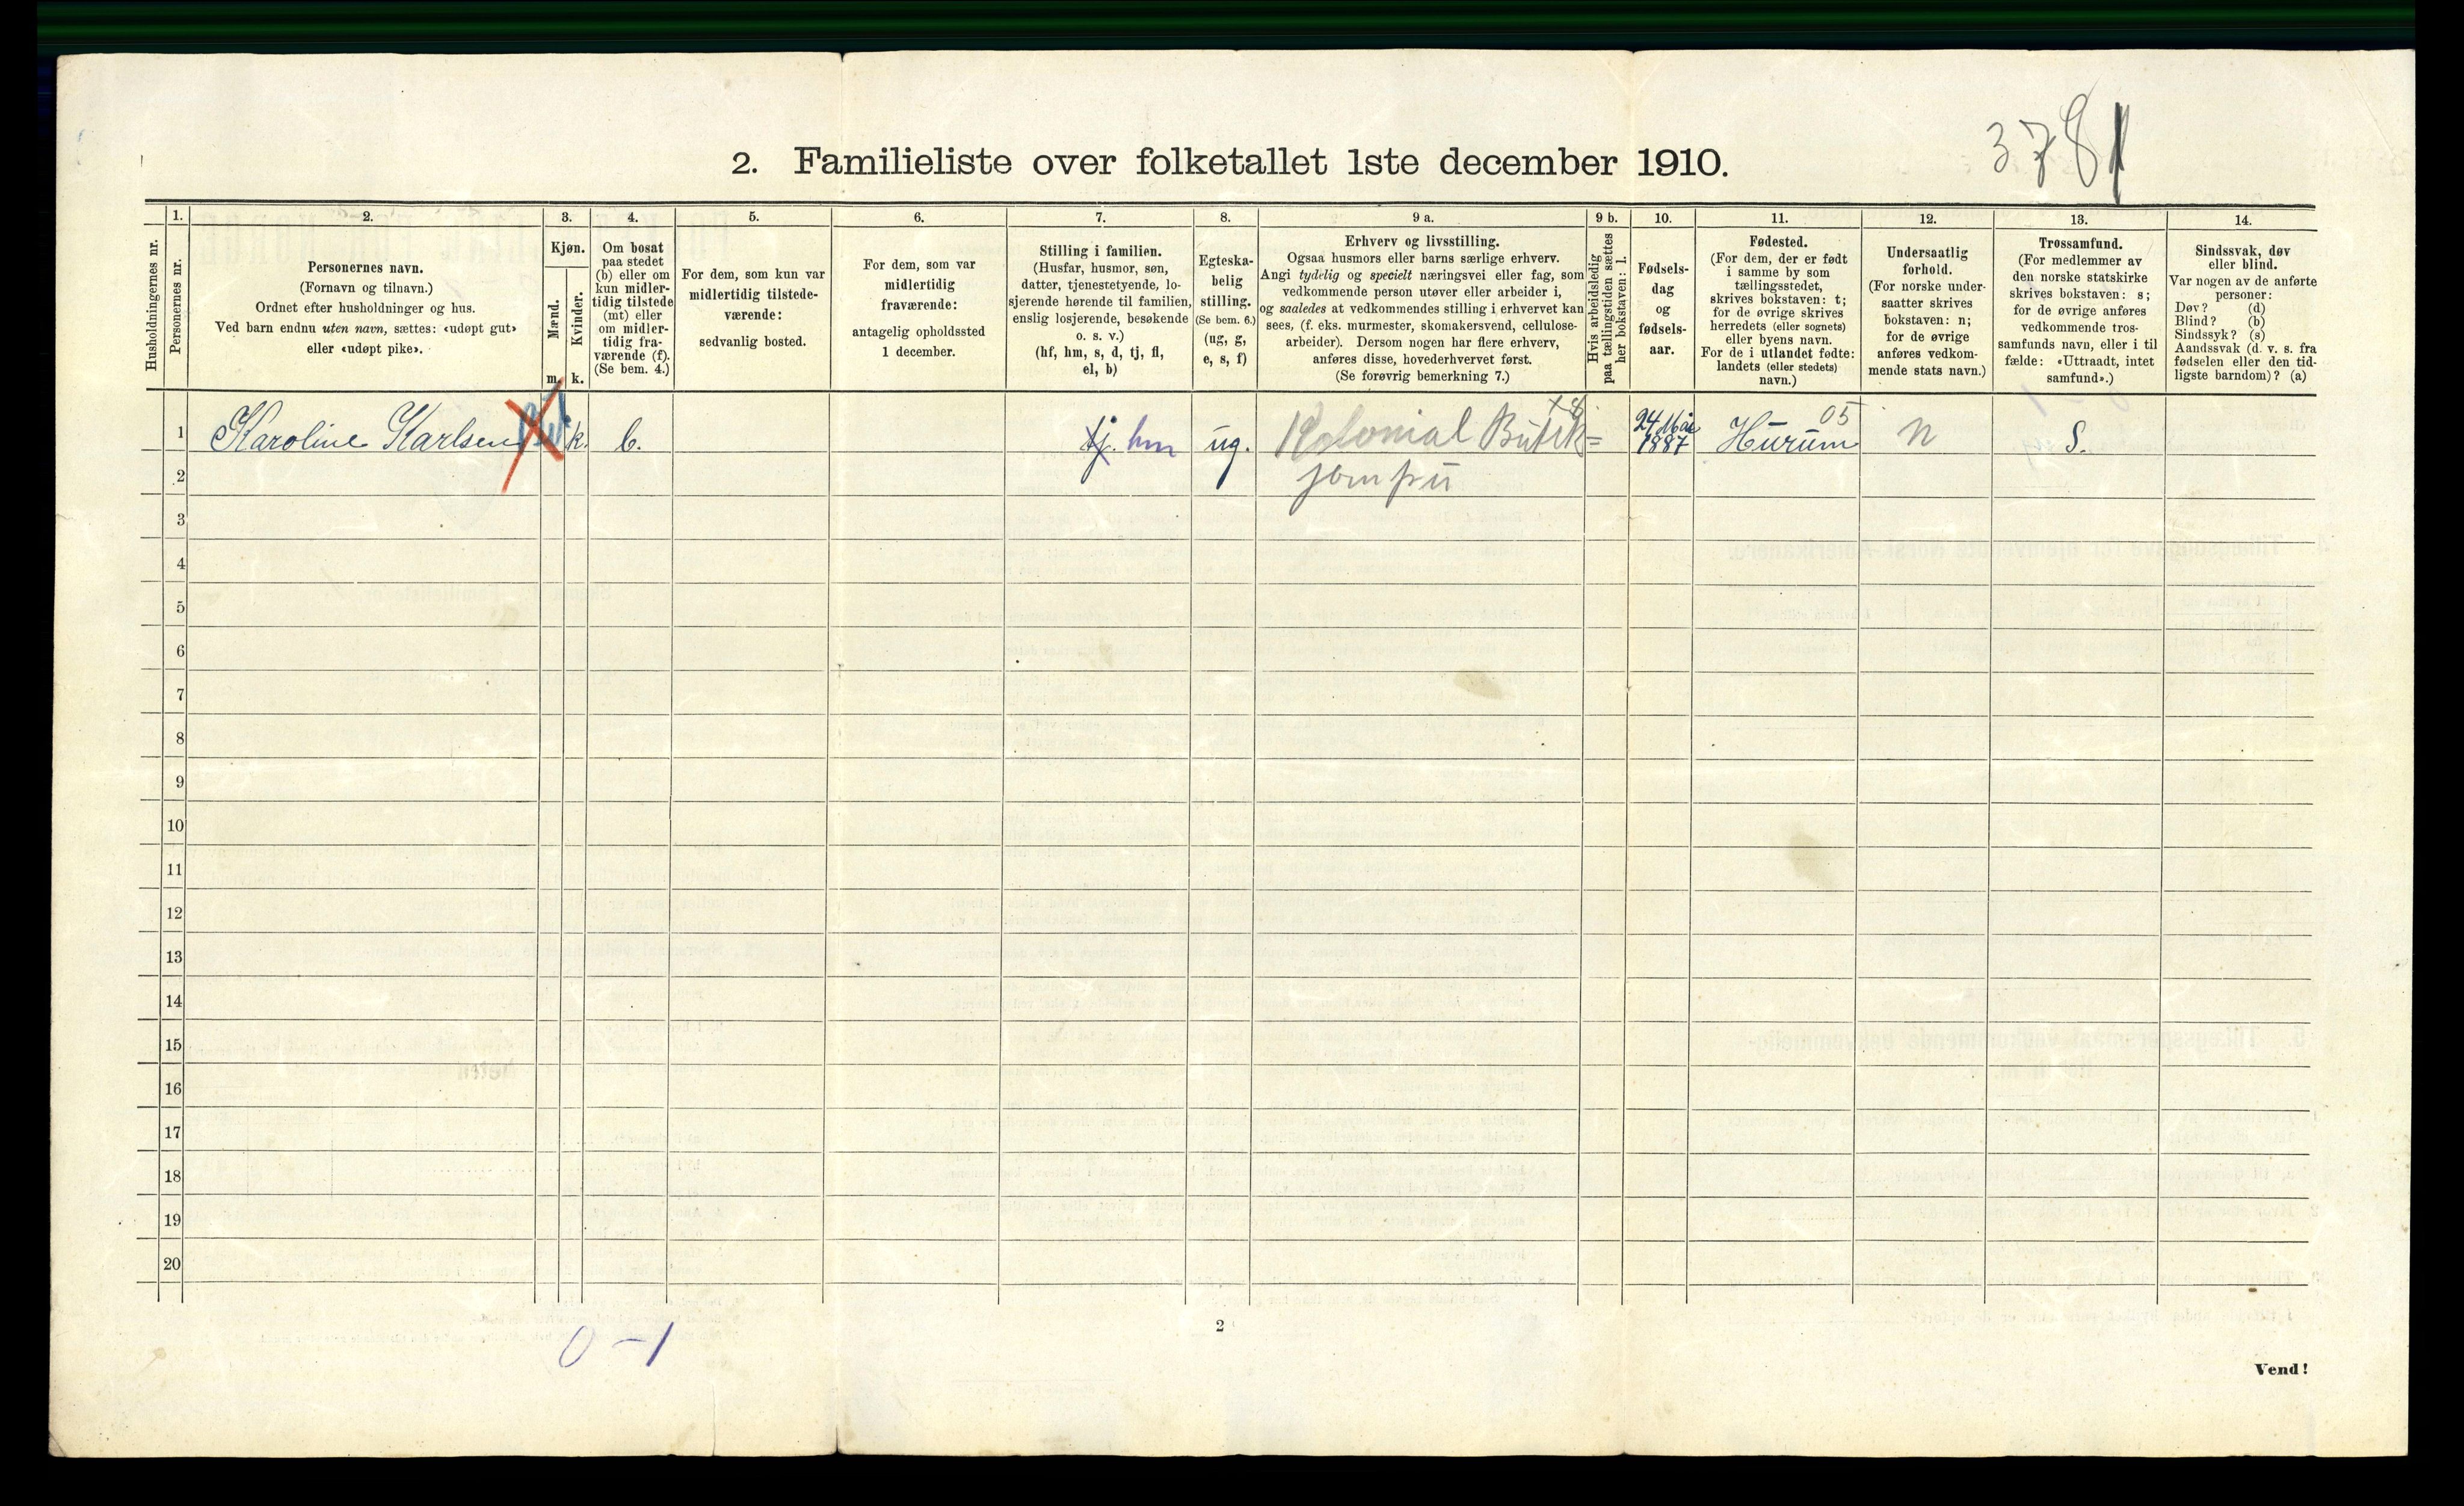 3781
2. Familieliste over folketallet 1ste december 1910.
Husholdningernes nr.
1.
Personernes nr.
2.
Personernes navn.
(Fornavn og tilnavn.)
Ordnet efter husholdninger og hus.
Ved barn endnu uten navn, sættes: «udøpt gut»
eller «udøpt pike».
3.
Kjøn.
Mænd.
Kvinder.
m. k.
4.
Om bosat
paa stedet
(b) eller om
kun midler-
tidig tilstede
(mt) eller
om midler-
tidig fra-
værende (f).
(Se bem. 4.)
5.
For dem, som kun var
midlertidig tilstede-
værende:
sedvanlig bosted.
6.
For dem, som var
midlertidig
fraværende:
antagelig opholdssted
1 december.
7.
Stilling i familien.
(Husfar, husmor, søn,
datter, tjenestetyende, lo-
sjerende hørende til familien,
enslig losjerende, besøkende
o. s. v.)
(hf, hm, s, d, tj, fl,
el, b)
8.
Egteska-
belig
stilling.
(Se bem. 6.)
(ug, g,
e, s, f)
9 a.
Erhverv og livsstilling.
Ogsaa husmors eller barns særlige erhverv.
Angi tydelig og specielt næringsvei eller fag, som
vedkommende person utøver eller arbeider i,
og saaledes at vedkommendes stilling i erhvervet kan
sees, (f. eks. murmester, skomakersvend, cellulose-
arbeider). Dersom nogen har flere erhverv,
anføres disse, hovederhvervet først.
(Se forøvrig bemerkning 7.)
9 b.
Hvis arbeidsledig
paa tællingstiden sættes
her bokstaven: l.
10.
Fødsels-
dag
og
fødsels-
aar.
11.
Fødested.
(For dem, der er født
i samme by som
tællingsstedet,
skrives bokstaven: t;
for de øvrige skrives
herredets (eller sognets)
eller byens navn.
For de i utlandet fødte:
landets (eller stedets)
navn.)
12.
Undersaatlig
forhold.
(For norske under-
saatter skrives
bokstaven: n;
for de øvrige
anføres vedkom-
mende stats navn.)
13.
Trossamfund.
(For medlemmer av
den norske statskirke
skrives bokstaven: s;
for de øvrige anføres
vedkommende tros-
samfunds navn, eller i til
fælde: «Uttraadt, intet
samfund».)
14.
Sindssvak, døv
eller blind.
Var nogen av de anførte
personer:
Døv? (d)
Blind? (b)
Sindssyk? (s)
Aandssvak (d. v. s. fra
fødselen eller den tid-
ligste barndom)? (a)
1 Karoline Karlsen k. b. tj. hm ug. Kolonial Butik= 24 Mai 1887 Hurum 05 n s.
jomfru
2
3
4
5
6
7
8
9
10
11
12
13
14
15
16
17
18
19
20
0 - 1
2
Vend!